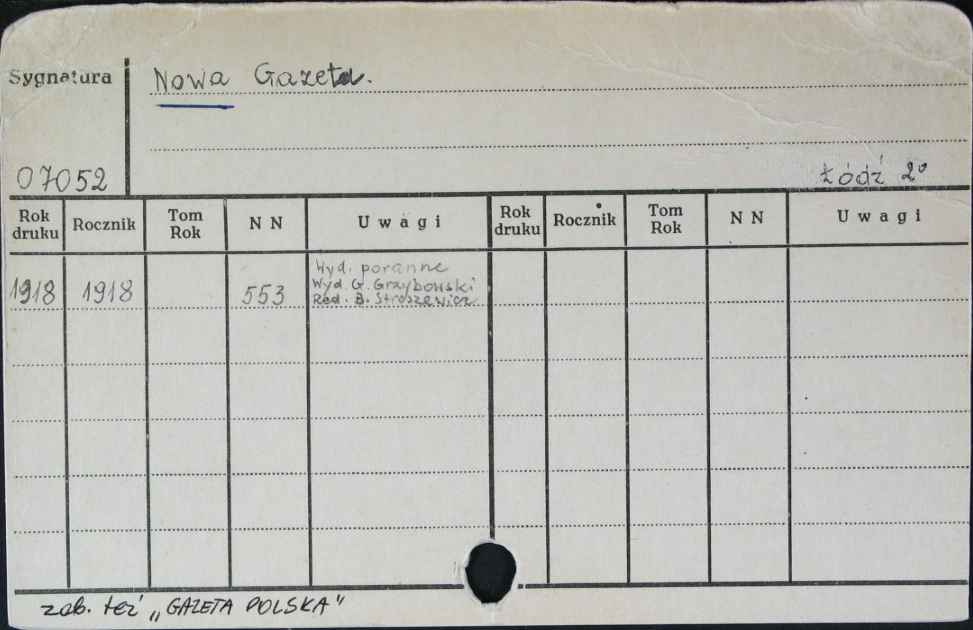 Sygnatura
Nowa Gazeta.
07052
Łódź 2°
Rok druku Rocznik Tom Rok N N Uwagi Rok druku Rocznik Tom Rok N N Uwagi
Wyd. poranne
Wyd. G. Grzybowski
1918 1918 553 Red. B. Stroszewicz
zob. też „GAZETA POLSKA"